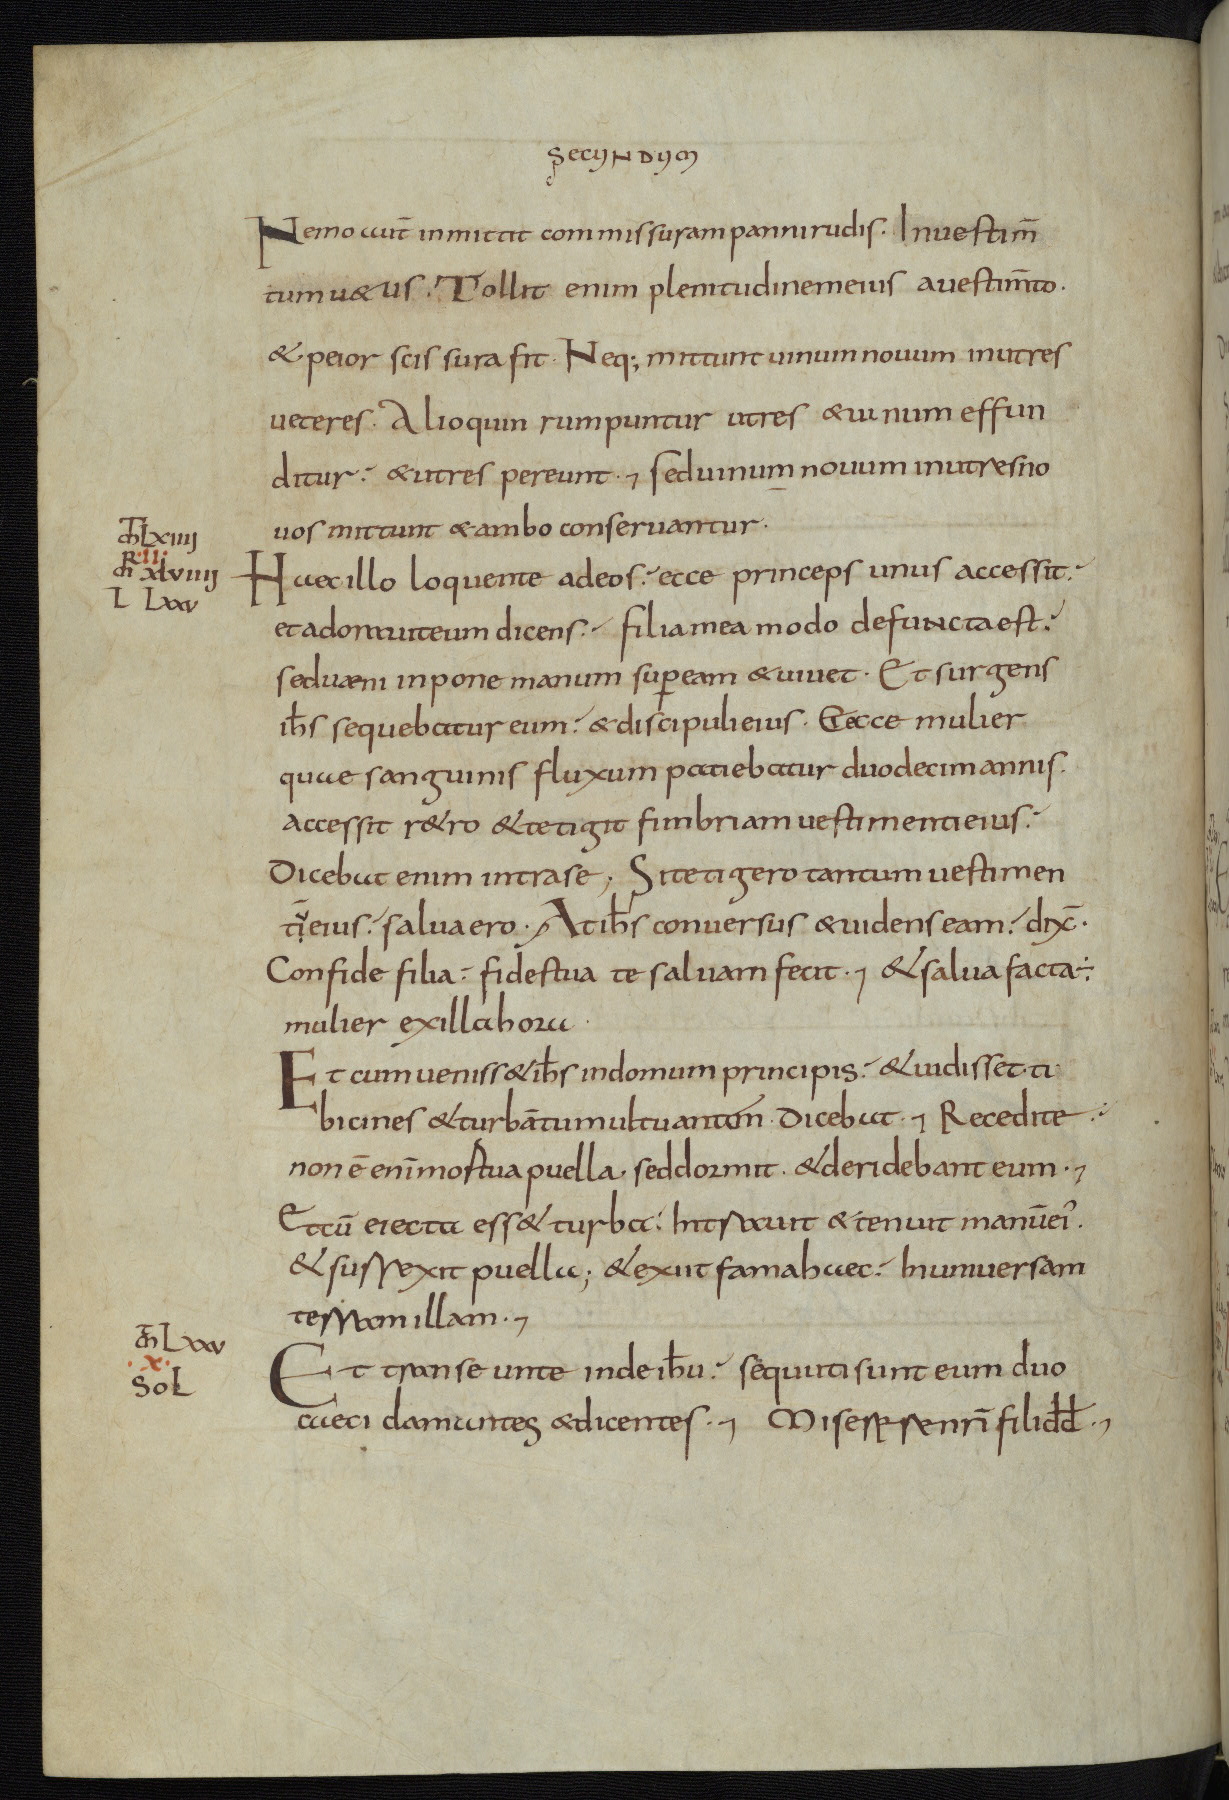 SECUNDUM
Nemo aut̄ inmittit commissuram panni rudis. Inuestim̄
tum u&us. Tollit enim plenitudinem eius auestim̄to.
& peior scissura fit. Neq; mittunt uinum nouum inutres
ueteres. Alioquin rumpuntur utres &uinum effun
ditur. &utres pereunt. sed uinum nouum inutres no
uos mittunt &ambo conseruantur.
m̄t LXIIII
II
m̄r XLVIIII
L LXXV
Haec illo loquente adeos. ecce princeps unus accessit.
et adorauit eum dicens. filia mea modo defuncta est.
sed ueni inpone manum sup eam &uiuet. Et surgens
ih̄s sequebatur eum. &discipuli eius. Et ecce mulier
quae sanguinis fluxum patiebatur duodecim annis.
accessit r&ro &tetigit fimbriam uestimenti eius.
Dicebat enim intra se; Si tetigero tantum uestimen
ti eius. salua ero. At ih̄s conuersus &uidens eam. dix̄.
Confide filia. fides tua te saluam fecit. &salua facta ÷
mulier ex illa hora.
Et cum ueniss& ih̄s indomum principis. &uidisset ti
bicines &turbā tumultuantem̄. Dicebat. Recedite.
non ē enī mortua puella. sed dormit. &deridebant eum.
Et cū eiecta ess& turba. Intrauit &tenuit manū ei'.
&surrexit puella; &exiit fama haec. In uniuersam
terram illam.
m̄t LXXV
X
SOL
Et transeunte inde ih̄u. sequuti sunt eum duo
caeci clamantes &dicentes. Miserere nr̄i fili dd̄.